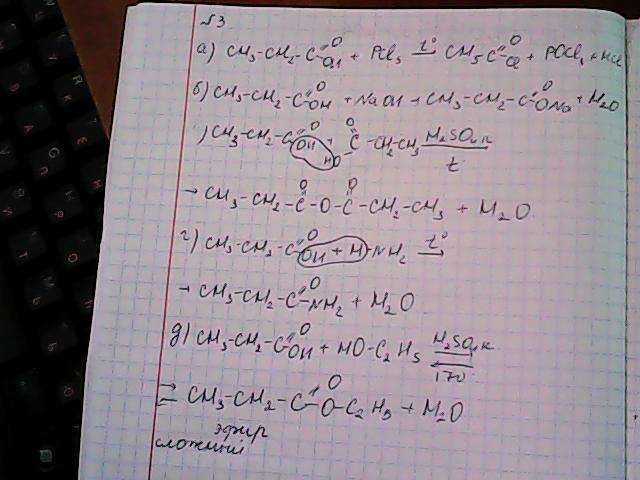 №3
а) CH₃-CH₂-C(=O)OH + PCl₅ –t°→ CH₅-C(=O)Cl + POCl₃ + HCl
б) CH₃-CH₂-C(=O)OH + NaOH → CH₃-CH₂-C(=O)ONa + H₂O
) CH₃-CH₂-C(=O)OH + HO-C(=O)-CH₂-CH₃ H₂SO₄ к / t
→ CH₃-CH₂-C(=O)-O-C(=O)-CH₂-CH₃ + H₂O
г) CH₃-CH₂-C(=O)OH + H-NH₂ –t°→
→ CH₃-CH₂-C(=O)NH₂ + H₂O
д) CH₃-CH₂-C(=O)OH + HO-C₂H₅ H₂SO₄ к / 170
⇌ CH₃-CH₂-C(=O)O-C₂H₅ + H₂O
эфир
сложный